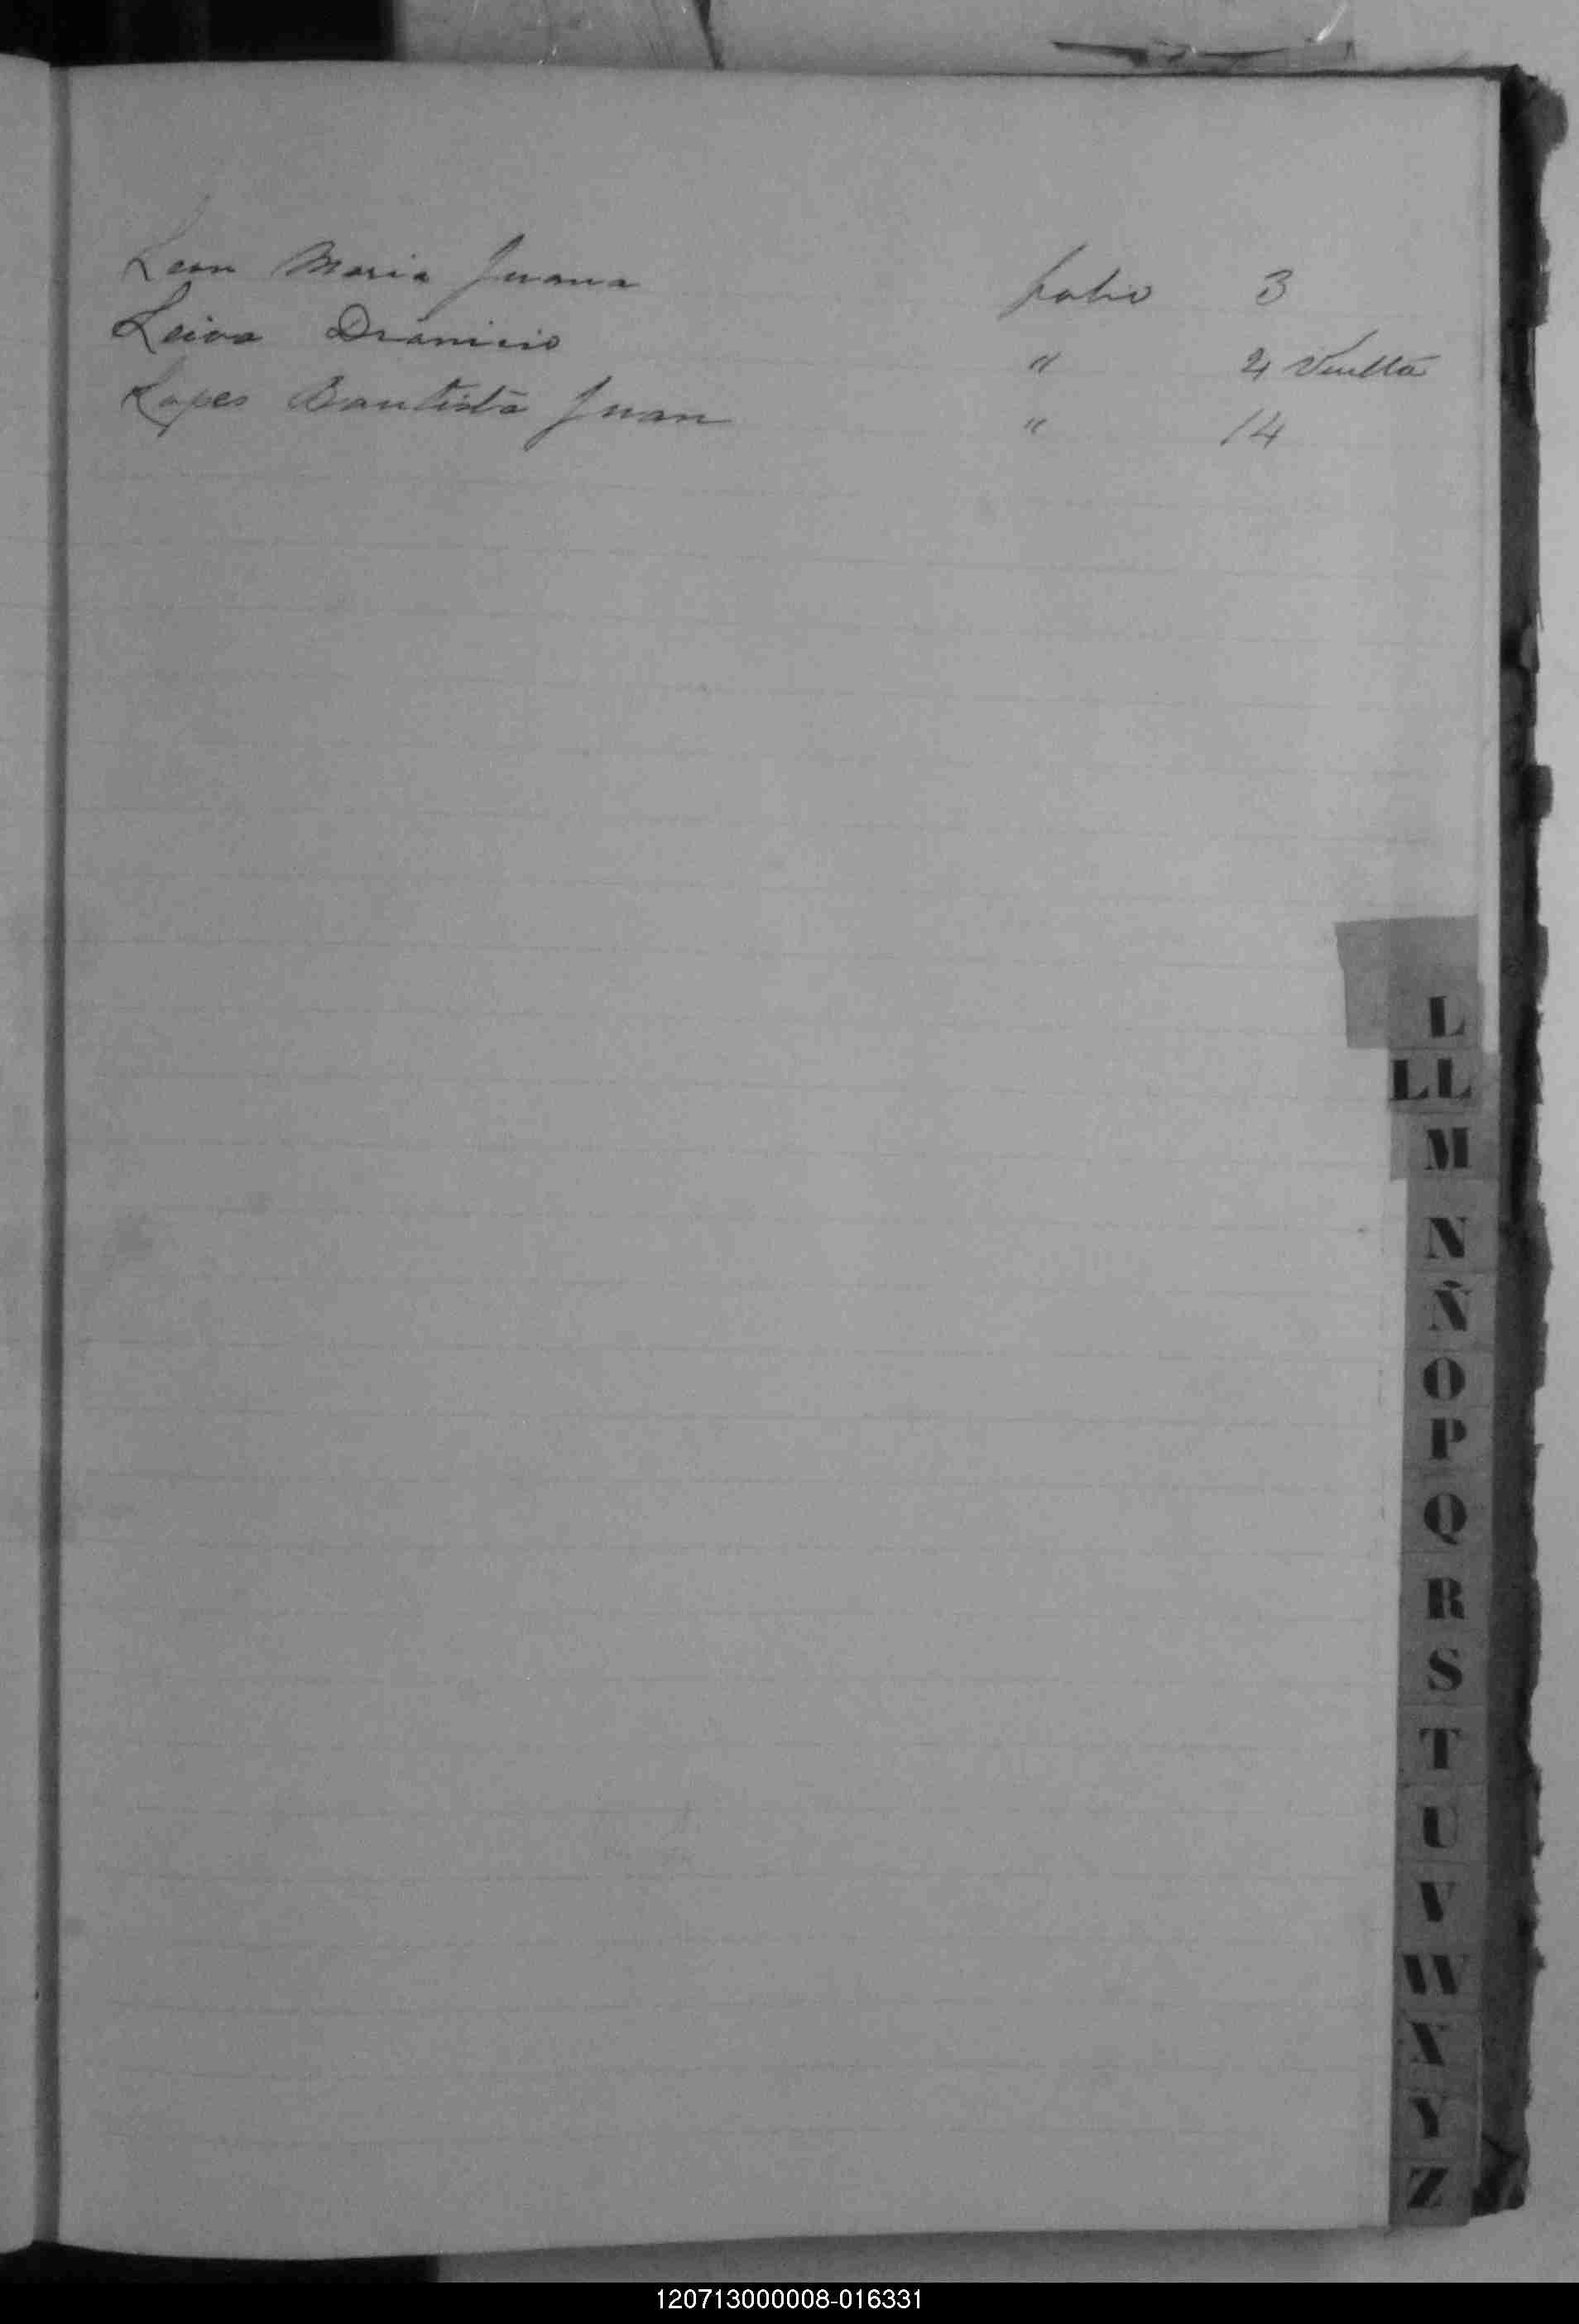 Leon Maria Juana folio 3
Leiva Dianicio " 4 Vuelta
Lopes Bautista Juan " 14
L
LL
M
N
Ñ
O
P
Q
R
S
T
U
V
W
X
Y
Z
120713000008-016331